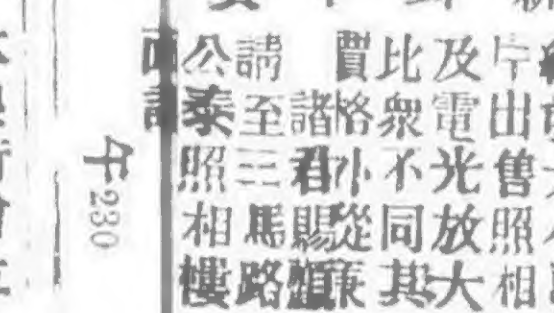 片出售照相
及電光放大
比衆不同其
賈格小從廉
諸君賜顧
請至三馬路
公泰照相樓
面議
午230